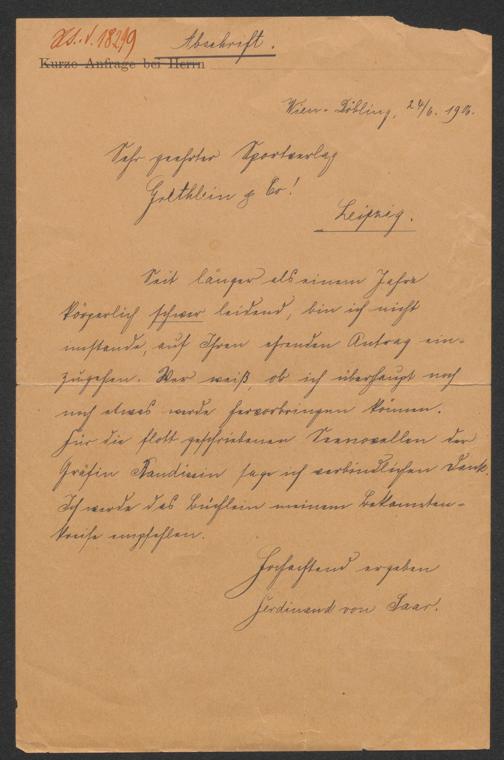 Hs. V. 1829
Abschrift.
Kurze Anfrage bei Herrn
Wien-Döbling, 24/6. 1906.
Sehr geehrter Sportverlag
Grethlein & Co!
Leipzig.
Seit länger als einem Jahre
körperlich schwer leidend, bin ich nicht
imstande, auf Ihren ehrenden Antrag ein-
zugehen. Wer weiß, ob ich überhaupt noch
noch etwas werde hervorbringen können.
Für die flott geschriebenen Seenovellen der
Gräfin sage ich verbindlichen Dank.
Ich werde das Büchlein meinem Bekannten-
kreise empfehlen.
Hochachtend ergeben
Ferdinand von Saar.